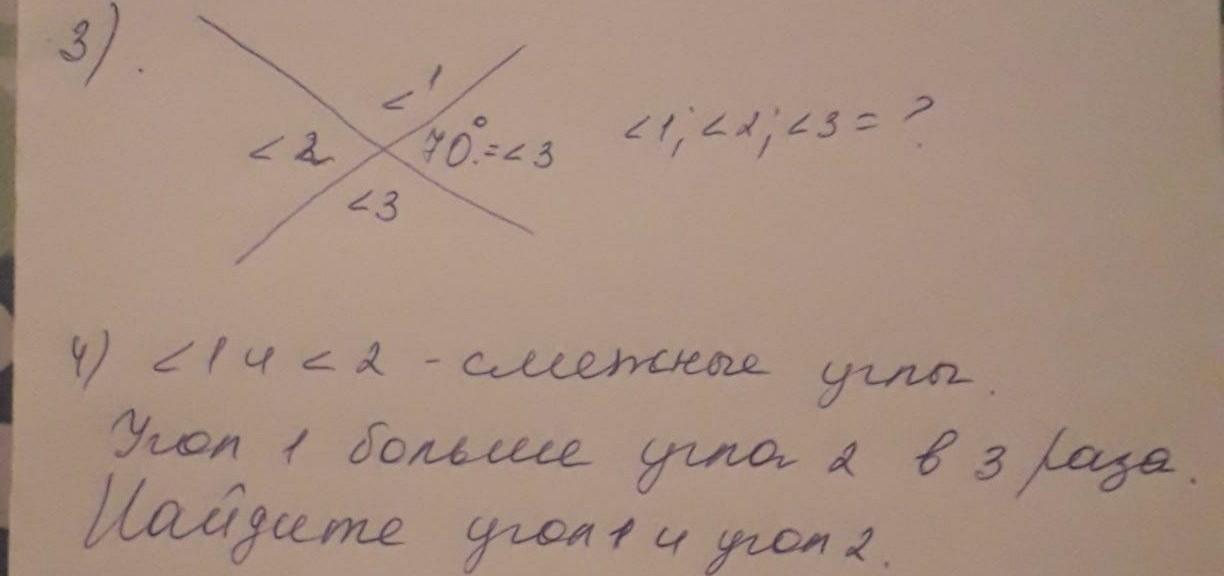 3).
<1
<2 70°.=<3 <1; <2; <3 = ?
<3
4) <1 и <2 - смежные углы.
Угол 1 больше угла 2 в 3 раза.
Найдите угол 1 и угол 2.